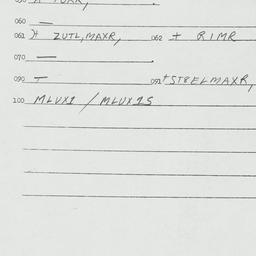 060 —
061 )+ ZUTL,MAXR, 062 + RIMR
070 — .
090 — 091 +STEELMAXR,
100 MLUX1 / MLUX1S